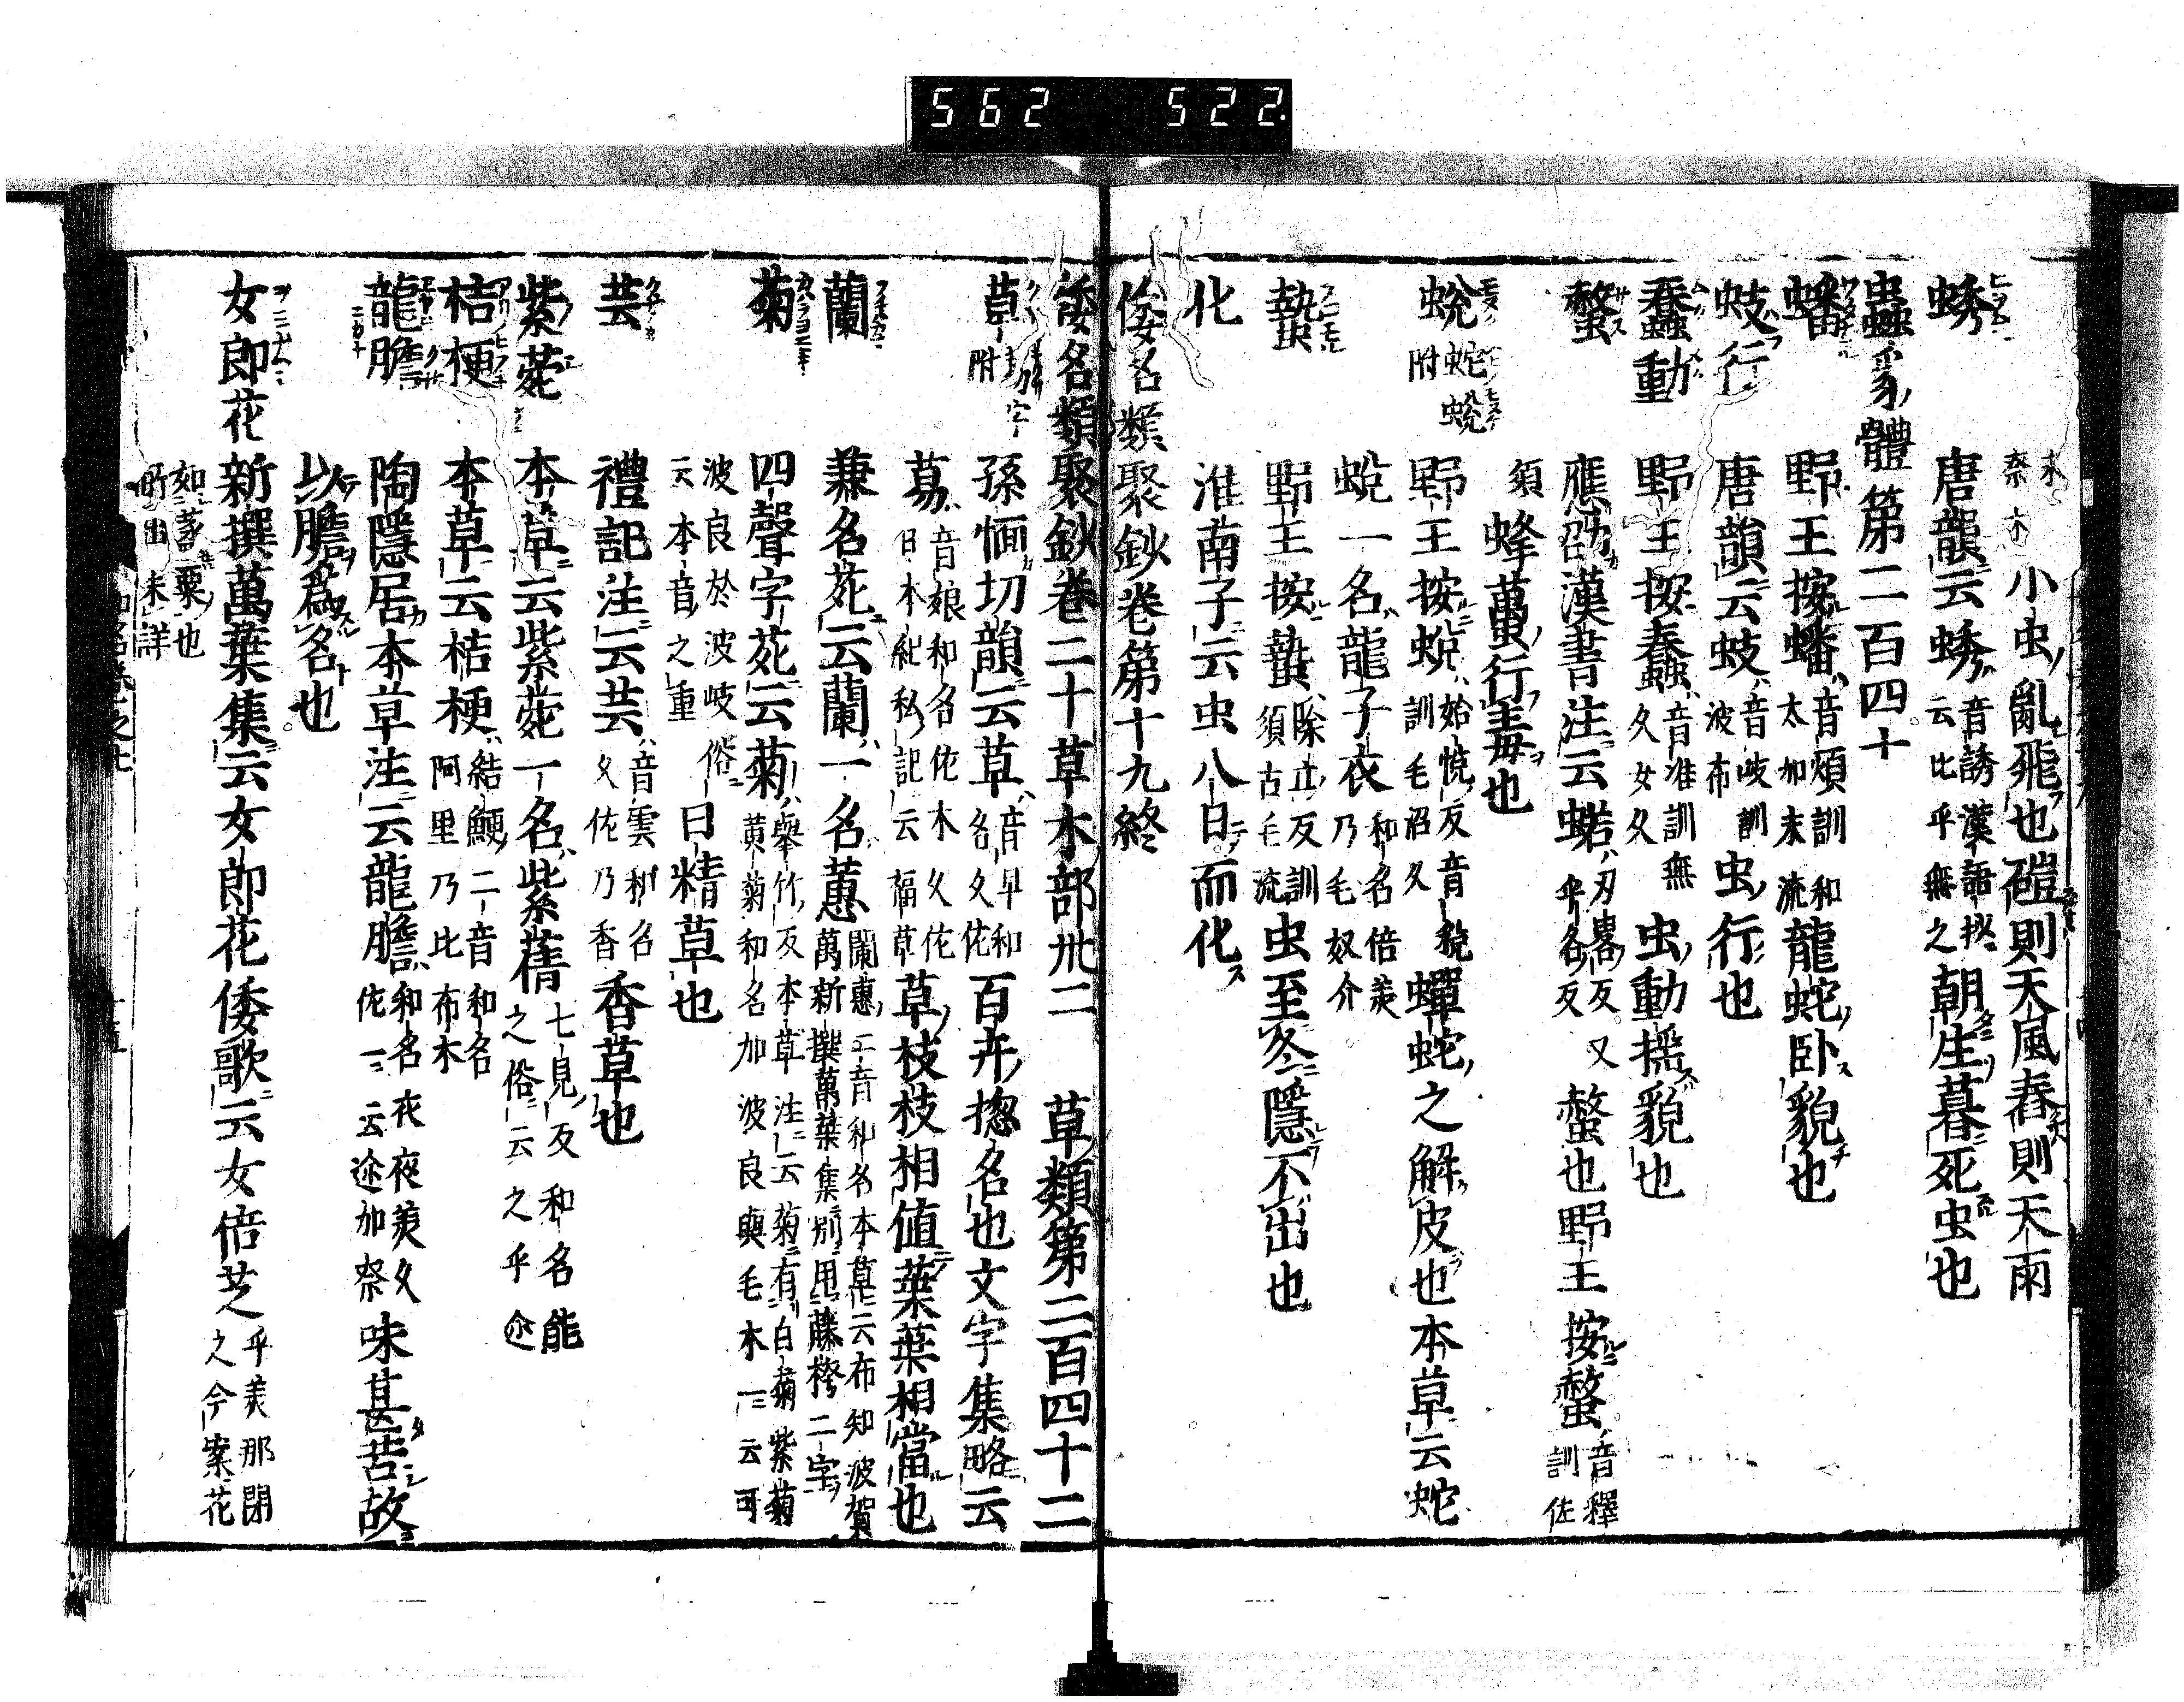 562 522
末奈木小虫亂飛也磑則天風舂則天雨
蜏 唐韻云蜏音誘漢語抄云比乎無之朝生暮死虫也
蟲豸體第二百四十
蟠 野王按蟠音煩訓和太加末流龍蛇卧貌也
蚑行 唐韻云蚑音岐訓波布虫行也
蠢動 野王按蠢音准訓無久女久虫動揺貌也
螫 應劭漢書注云蠚刃畧反又乎各反螫也野王按螫音釋訓佐
須蜂蠆行毒也
蛻 蛇蛻附 野王按蛻始悦反音稅訓毛沼久蟬蛇之解皮也本草云蛇
蛻一名龍子衣和名倍美乃毛奴介
蟄 野王按蟄除立反訓須古毛流虫至冬隱不出也
化 淮南子云虫八日而化
倭名類聚鈔卷第十九終
倭名類聚鈔卷二十草木部卅二 草類第二百四十二
草 孫愐切韻云草音早和名久佐百卉揔名也文字集略云
葛音娘和名佐木久佐日本紀私記云福草草枝枝相値葉葉相當也
蘭 兼名苑云蘭一名蕙闌惠二音和名本草云布知波賀萬新撰萬葉集別用藤袴二字
菊 四聲字苑云菊舉竹反本草注云菊有白菊紫菊黄菊和名加波良與毛木一云可
波良於波岐俗云本音之重日精草也
芸 禮記注云芸音雲和名久佐乃香香草也
紫菀 本草云紫菀一名紫蒨七見反和名能之俗云之乎迩
桔梗 本草云桔梗結鯁二音和名阿里乃比布木
龍膽 陶隱居本草注云龍膽和名衣夜美久佐一云迩加奈味甚苦故
以膽爲名也
女郎花 新撰萬葉集云女郎花倭歌云女倍芝乎美那閇之今案花
如蒸粟也所出未詳